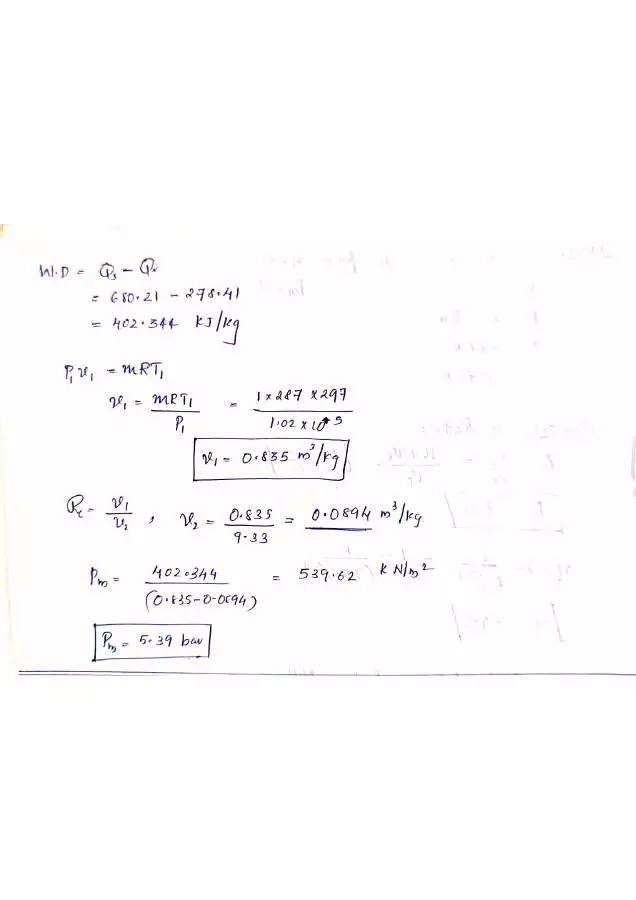 W.D = Qs - Qr
= 680.21 - 278.41
= 402.344 KJ/kg
P₁v₁ = mRT₁
v₁ = mRT₁/P₁ = 1 x 287 x 297 / 1.02 x 10⁵
v₁ = 0.835 m³/kg
Rc = v₁/v₂ , v₂ = 0.835/9.33 = 0.0894 m³/kg
Pm = 402.344/(0.835-0.0894) = 539.62 KN/m²
Pm = 5.39 bar